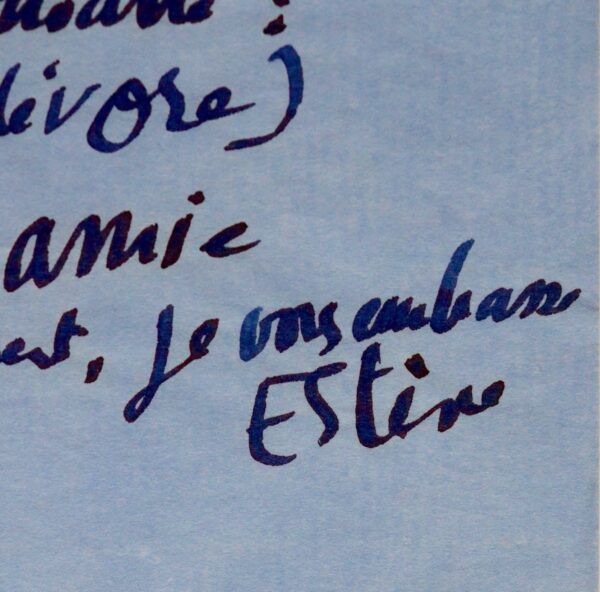 dévore)
amie
est, je vous embrasse
Estève